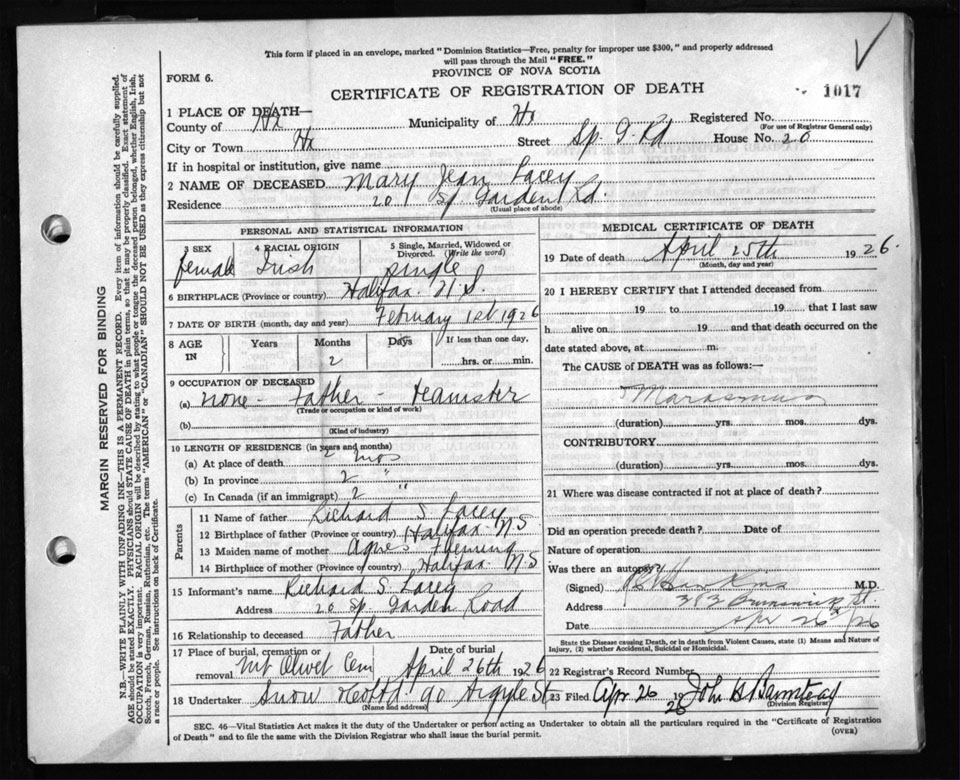 This form if placed in an envelope, marked "Dominion Statistics—Free, penalty for improper use $300," and properly addressed
will pass through the Mail "FREE."
PROVINCE OF NOVA SCOTIA
FORM 6.
CERTIFICATE OF REGISTRATION OF DEATH
1017
1 PLACE OF DEATH—
County of Hx Municipality of Hx Registered No.
(For use of Registrar General only)
City or Town Hx Street Sp. G. Rd House No. 20
If in hospital or institution, give name
2 NAME OF DECEASED Mary Jean Lacey
Residence 20 Sp Garden Rd
(Usual place of abode)
PERSONAL AND STATISTICAL INFORMATION
3 SEX female
4 RACIAL ORIGIN Irish
5 Single, Married, Widowed or Divorced. (Write the word) single
6 BIRTHPLACE (Province or country) Halifax N.S.
7 DATE OF BIRTH (month, day and year) February 1st 1926
8 AGE IN Years Months Days If less than one day,
2 hrs. or min.
9 OCCUPATION OF DECEASED
(a) none - Father - teamster
(Trade or occupation or kind of work)
(b)
(Kind of industry)
10 LENGTH OF RESIDENCE (in years and months)
(a) At place of death 2 mos
(b) In province 2 "
(c) In Canada (if an immigrant) 2 "
Parents
11 Name of father Richard S Lacey
12 Birthplace of father (Province or country) Halifax N.S
13 Maiden name of mother Agnes Fleming
14 Birthplace of mother (Province or country) Halifax N.S
15 Informant's name Richard S. Lacey
Address 20 Sp. Garden Road
16 Relationship to deceased Father
17 Place of burial, cremation or removal Mt Olivet Cem
Date of burial April 26th 1926
18 Undertaker Snow & Co Ltd. 90 Argyle St
(Name and address)
MEDICAL CERTIFICATE OF DEATH
19 Date of death April 25th 1926.
(Month, day and year)
20 I HEREBY CERTIFY that I attended deceased from
19 to 19 that I last saw
h alive on 19 and that death occurred on
date stated above, at m.
The CAUSE of DEATH was as follows:—
Marasmus
(duration) yrs. mos. dys.
CONTRIBUTORY
(duration) yrs. mos. dys.
21 Where was disease contracted if not at place of death?
Did an operation precede death? Date of
Nature of operation
Was there an autopsy?
(Signed) Hawkins M.D.
Address 313 Brunswick St.
Date Apr 26th/26
State the Disease causing Death, or in death from Violent Causes, state (1) Means and Nature of
Injury, (2) whether Accidental, Suicidal or Homicidal.
22 Registrar's Record Number
23 Filed Apr 26 1926 John B
(Division Registrar)
SEC. 46—Vital Statistics Act makes it the duty of the Undertaker or person acting as Undertaker to obtain all the particulars required in the "Certificate of Registration
of Death" and to file the same with the Division Registrar who shall issue the burial permit.
(OVER)
MARGIN RESERVED FOR BINDING
N.B.—WRITE PLAINLY WITH UNFADING INK—THIS IS A PERMANENT RECORD. Every item of information should be carefully supplied.
AGE should be stated EXACTLY. PHYSICIANS should STATE CAUSE OF DEATH in plain terms, so that it may be properly classified. Exact statement of
OCCUPATION is very important. RACIAL ORIGIN will be described by stating to what people or tongue the deceased person belonged, whether English, Irish,
Scotch, French, German, Russian, Ruthenian, etc. The terms "AMERICAN" or "CANADIAN" SHOULD NOT BE USED as they express citizenship but not
a race or people. See instructions on back of Certificate.